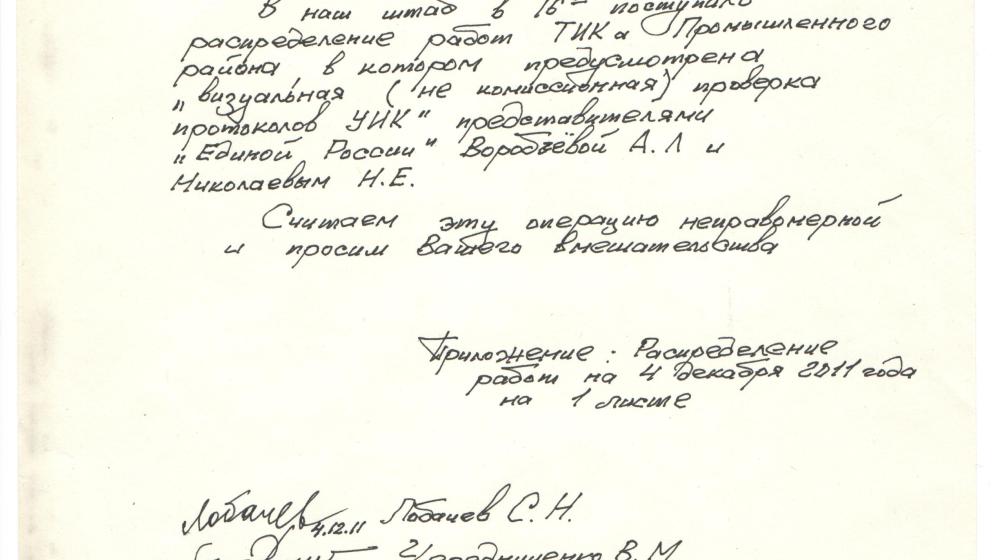 В наш штаб в 16 поступило
распределение работ ТИКа Промышленного
района, в котором предусмотрена
„визуальная (не комиссионная) проверка
протоколов УИК" представителями
„Единой России" Воробьёвой А.Л и
Николаевым Н.Е.
Считаем эту операцию неправомерной
и просим Вашего вмешательства
Приложение: Распределение
работ на 4 декабря 2011 года
на 1 листе
Лобачев 4.12.11 Лобачев С.Н.
В.М